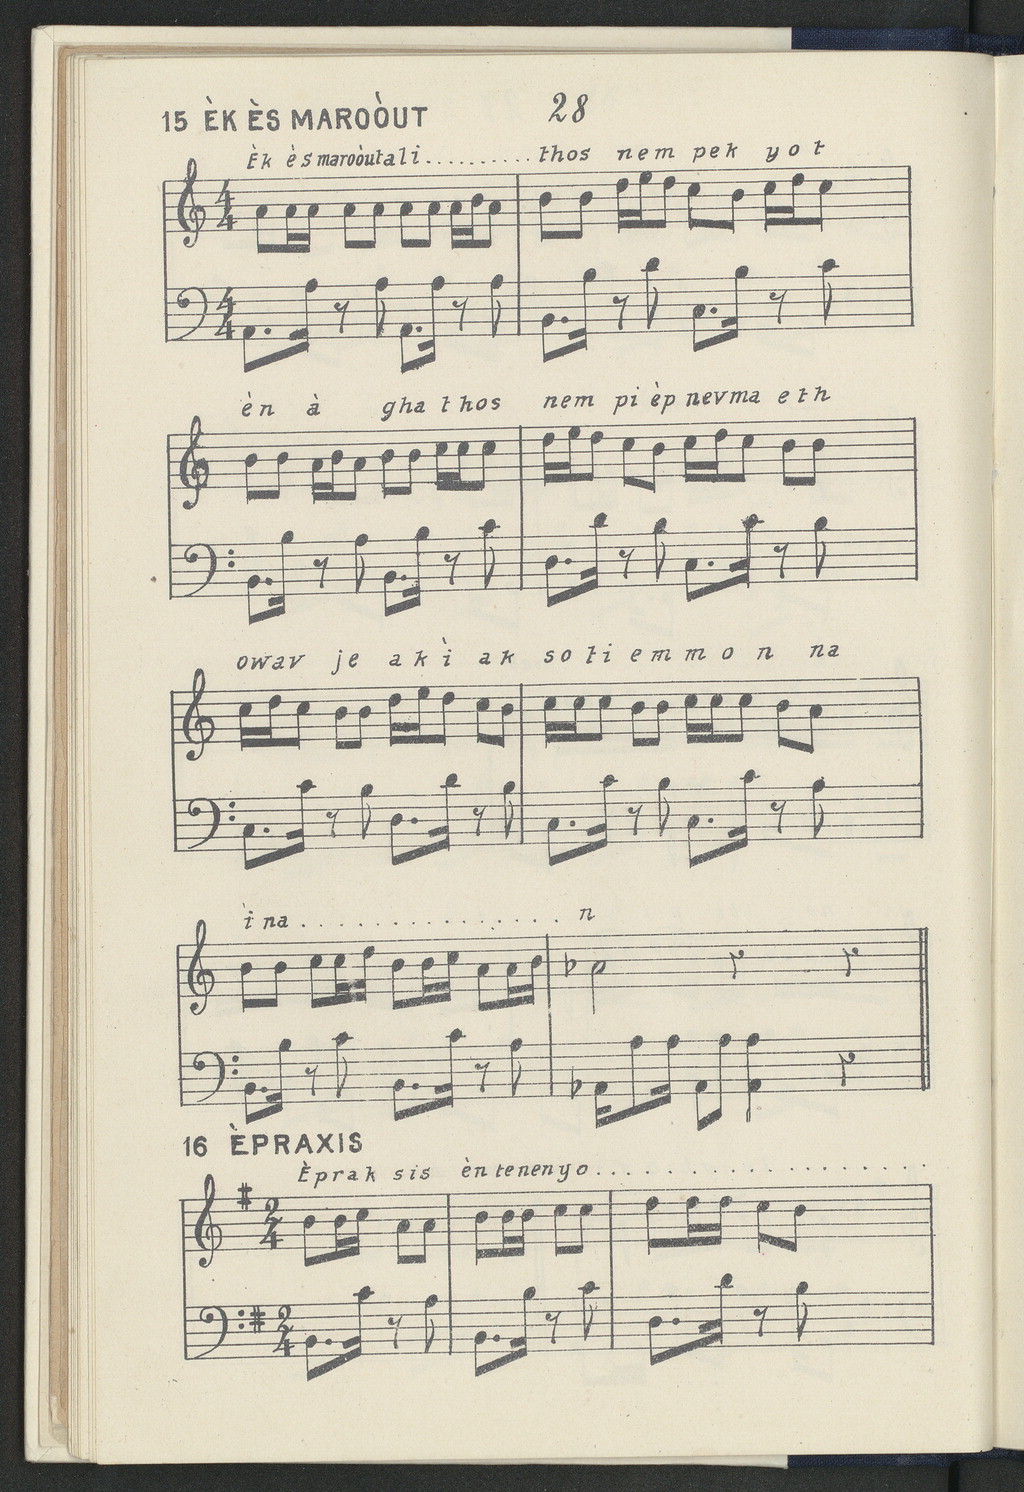 28
15 ÈK ÈS MAROÒUT
Èk ès maroòutali.......... thos nem pek yot
èn à ghathos nem pi èp nevma eth
owav je akì ak soti emmon na
ì na............... n
16 ÈPRAXIS
Èprak sis èn tenenyo..................